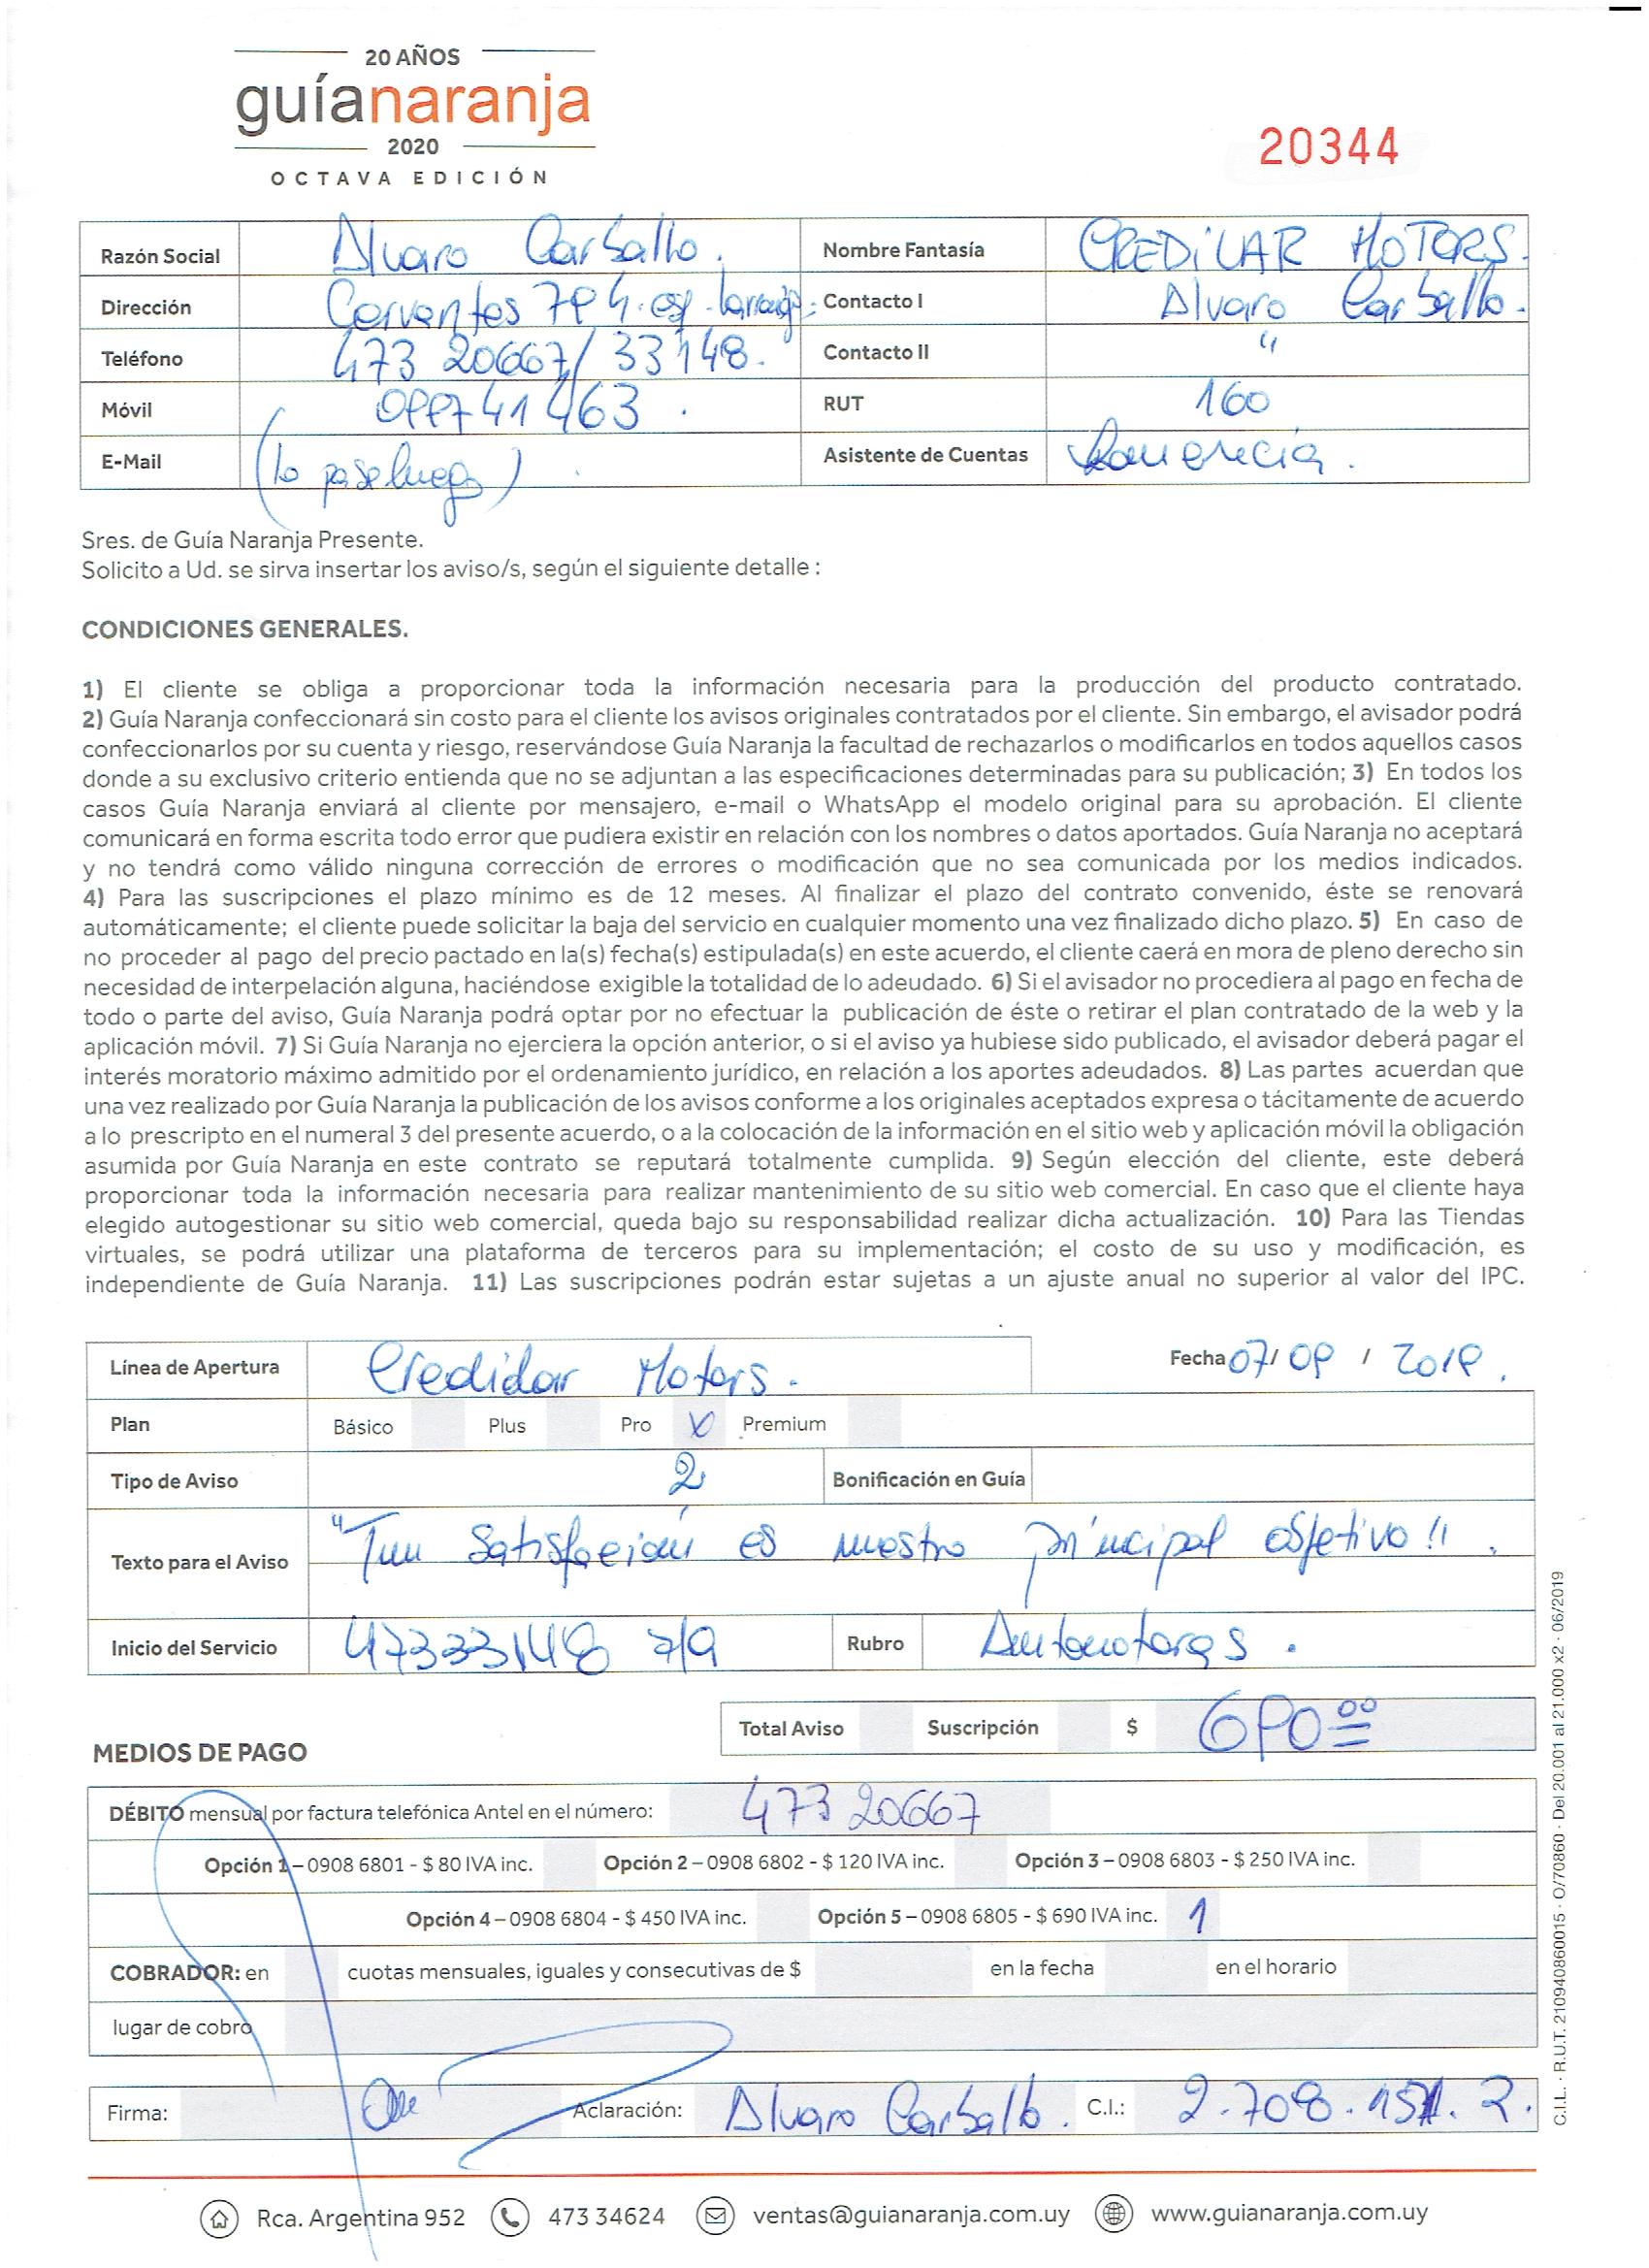 20 AÑOS
guíanaranja
2020
OCTAVA EDICIÓN
20344
Razón Social Alvaro Carballo. Nombre Fantasía CREDILAR MOTORS.
Dirección Cervantes 794. esq. Contacto I Alvaro Carballo.
Teléfono 473 20667/33148. Contacto II "
Móvil 099741463. RUT 160
E-Mail (lo pase luego) Asistente de Cuentas
Sres. de Guía Naranja Presente.
Solicito a Ud. se sirva insertar los aviso/s, según el siguiente detalle :
CONDICIONES GENERALES.
1) El cliente se obliga a proporcionar toda la información necesaria para la producción del producto contratado.
2) Guía Naranja confeccionará sin costo para el cliente los avisos originales contratados por el cliente. Sin embargo, el avisador podrá
confeccionarlos por su cuenta y riesgo, reservándose Guía Naranja la facultad de rechazarlos o modificarlos en todos aquellos casos
donde a su exclusivo criterio entienda que no se adjuntan a las especificaciones determinadas para su publicación; 3) En todos los
casos Guía Naranja enviará al cliente por mensajero, e-mail o WhatsApp el modelo original para su aprobación. El cliente
comunicará en forma escrita todo error que pudiera existir en relación con los nombres o datos aportados. Guía Naranja no aceptará
y no tendrá como válido ninguna corrección de errores o modificación que no sea comunicada por los medios indicados.
4) Para las suscripciones el plazo mínimo es de 12 meses. Al finalizar el plazo del contrato convenido, éste se renovará
automáticamente; el cliente puede solicitar la baja del servicio en cualquier momento una vez finalizado dicho plazo. 5) En caso de
no proceder al pago del precio pactado en la(s) fecha(s) estipulada(s) en este acuerdo, el cliente caerá en mora de pleno derecho sin
necesidad de interpelación alguna, haciéndose exigible la totalidad de lo adeudado. 6) Si el avisador no procediera al pago en fecha de
todo o parte del aviso, Guía Naranja podrá optar por no efectuar la publicación de éste o retirar el plan contratado de la web y la
aplicación móvil. 7) Si Guía Naranja no ejerciera la opción anterior, o si el aviso ya hubiese sido publicado, el avisador deberá pagar el
interés moratorio máximo admitido por el ordenamiento jurídico, en relación a los aportes adeudados. 8) Las partes acuerdan que
una vez realizado por Guía Naranja la publicación de los avisos conforme a los originales aceptados expresa o tácitamente de acuerdo
a lo prescripto en el numeral 3 del presente acuerdo, o a la colocación de la información en el sitio web y aplicación móvil la obligación
asumida por Guía Naranja en este contrato se reputará totalmente cumplida. 9) Según elección del cliente, este deberá
proporcionar toda la información necesaria para realizar mantenimiento de su sitio web comercial. En caso que el cliente haya
elegido autogestionar su sitio web comercial, queda bajo su responsabilidad realizar dicha actualización. 10) Para las Tiendas
virtuales, se podrá utilizar una plataforma de terceros para su implementación; el costo de su uso y modificación, es
independiente de Guía Naranja. 11) Las suscripciones podrán estar sujetas a un ajuste anual no superior al valor del IPC.
Línea de Apertura Credilar Motors. Fecha 07/09/2019.
Plan Básico Plus Pro X Premium
Tipo de Aviso 2 Bonificación en Guía
Texto para el Aviso "Tu Satisfacción es nuestro principal objetivo!!.
Inicio del Servicio 47333148 7/9 Rubro Automotoras.
Total Aviso Suscripción $ 690 00
MEDIOS DE PAGO
DÉBITO mensual por factura telefónica Antel en el número: 473 20667
Opción 1 – 0908 6801 - $ 80 IVA inc. Opción 2 – 0908 6802 - $ 120 IVA inc. Opción 3 – 0908 6803 - $ 250 IVA inc.
Opción 4 – 0908 6804 - $ 450 IVA inc. Opción 5 – 0908 6805 - $ 690 IVA inc. 1
COBRADOR: en cuotas mensuales, iguales y consecutivas de $ en la fecha en el horario
lugar de cobro
Firma: Aclaración: Alvaro Carballo. C.I.: 2.708.151.2.
Rca. Argentina 952 473 34624 ventas@guianaranja.com.uy www.guianaranja.com.uy
C.I.L. · R.U.T. 210940860015 · O/70860 · Del 20.001 al 21.000 x2 · 06/2019